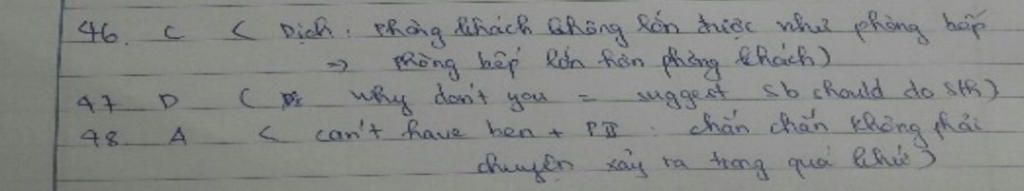 46. C ( Dịch: Phòng khách không lớn được như phòng bếp
=> Phòng bếp lớn hơn phòng khách)
47 D ( why don't you = suggest sb should do sth)
48 A ( can't have ben + PII : chắn chắn không phải
chuyện xảy ra trong quá khứ)